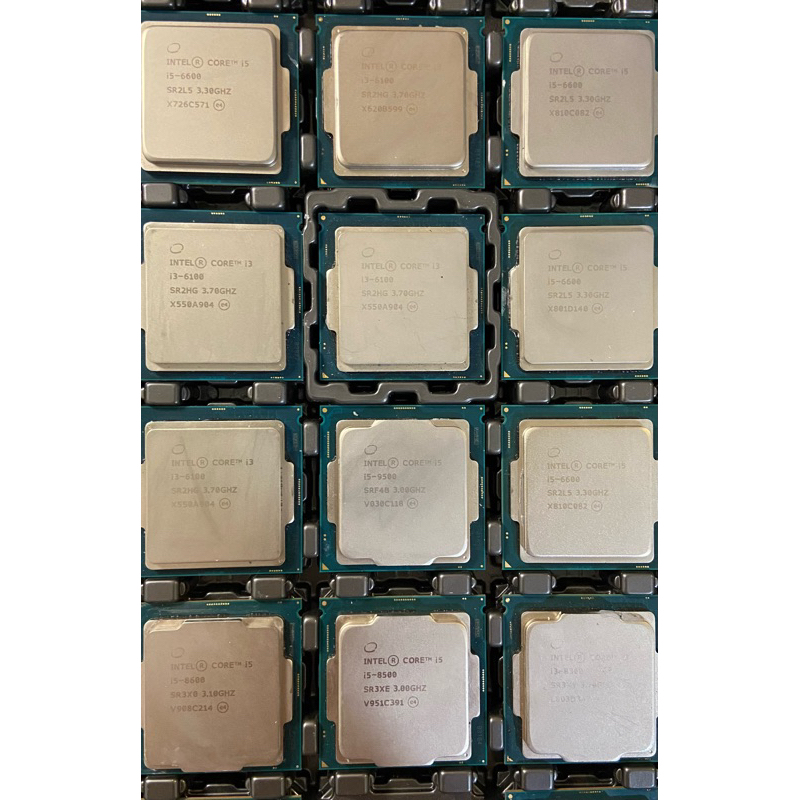 INTEL® CORE™ i5
i5-6600
SR2L5 3.30GHZ
X726C571 e4
i3-6100
SR2HG 3.70GHZ
X620B590
INTEL® CORE™ i5
i5-6600
SR2L5 3.30GHZ
X810C082 e4
INTEL® CORE™ i3
i3-6100
SR2HG 3.70GHZ
X550A904 e4
INTEL® CORE™ i3
i3-6100
SR2HG 3.70GHZ
X550A904 e4
INTEL® CORE™ i5
i5-6600
SR2L5 3.30GHZ
X801D140 e4
INTEL® CORE™ i3
i3-6100
SR2HG 3.70GHZ
X550A904 e4
INTEL® CORE™ i5
i5-9500
SRF4B 3.00GHZ
V030C118 e4
INTEL® CORE™ i5
i5-6600
SR2L5 3.30GHZ
X810C082 e4
INTEL® CORE™ i5
i5-8600
SR3X0 3.10GHZ
V908C214 e4
INTEL® CORE™ i5
i5-8500
SR3XE 3.00GHZ
V951C391 e4
INTEL®